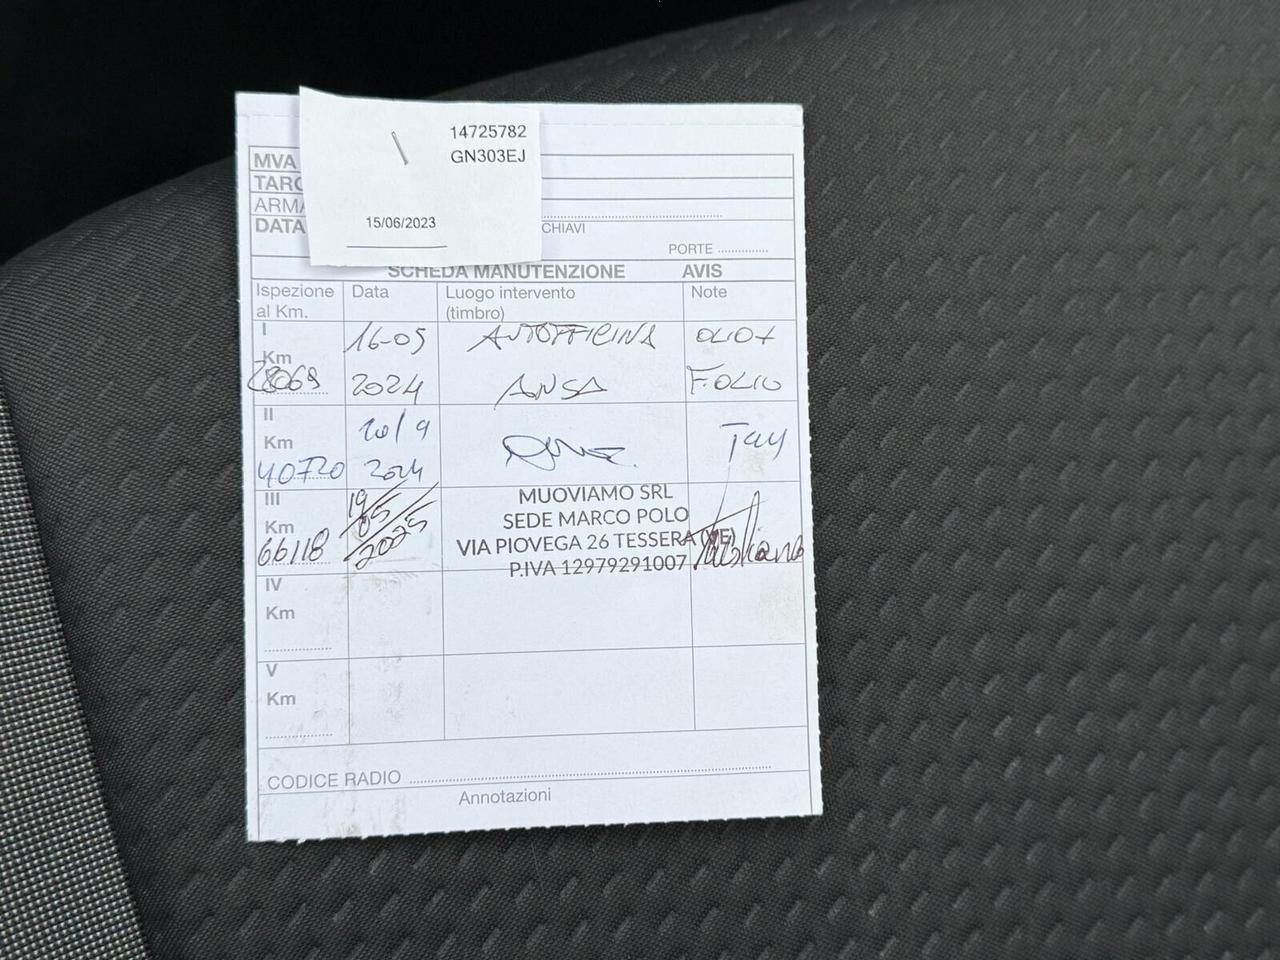 14725782
GN303EJ
15/06/2023
MVA
TARG
ARMA
DATA
CHIAVI
PORTE
SCHEDA MANUTENZIONE AVIS
Ispezione al Km. Data Luogo intervento (timbro) Note
I Km 28069 16-05 2024 AUTOFFICINA ANSA OLIO+ F.OLIO
II Km 40720 20/9 2024
III Km 66118 19/05/2025
MUOVIAMO SRL
SEDE MARCO POLO
VIA PIOVEGA 26 TESSERA (VE)
P.IVA 12979291007
IV Km
V Km
CODICE RADIO
Annotazioni